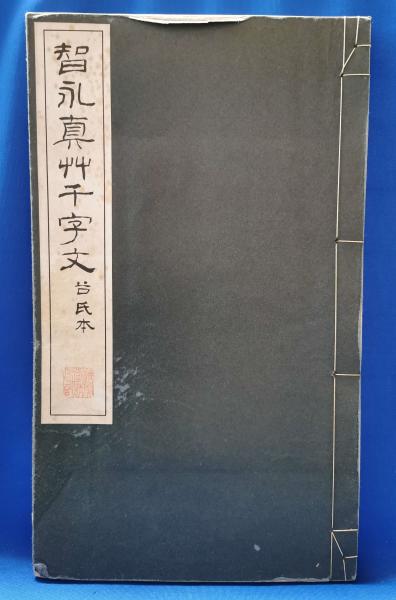 智永真艸千字文 谷氏本